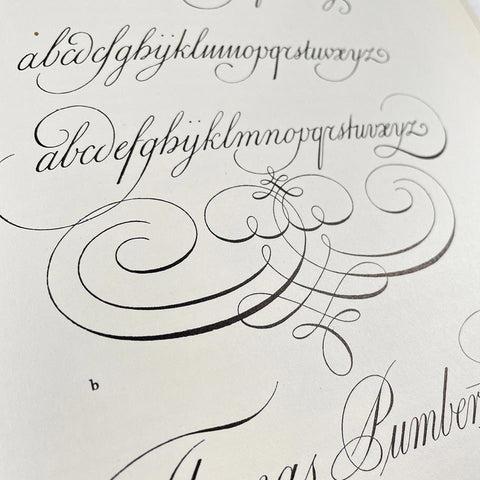 abcdefghijklmnopqrstuvxyz
abcdefghijklmnopqrstuvxyz
b
Thomas